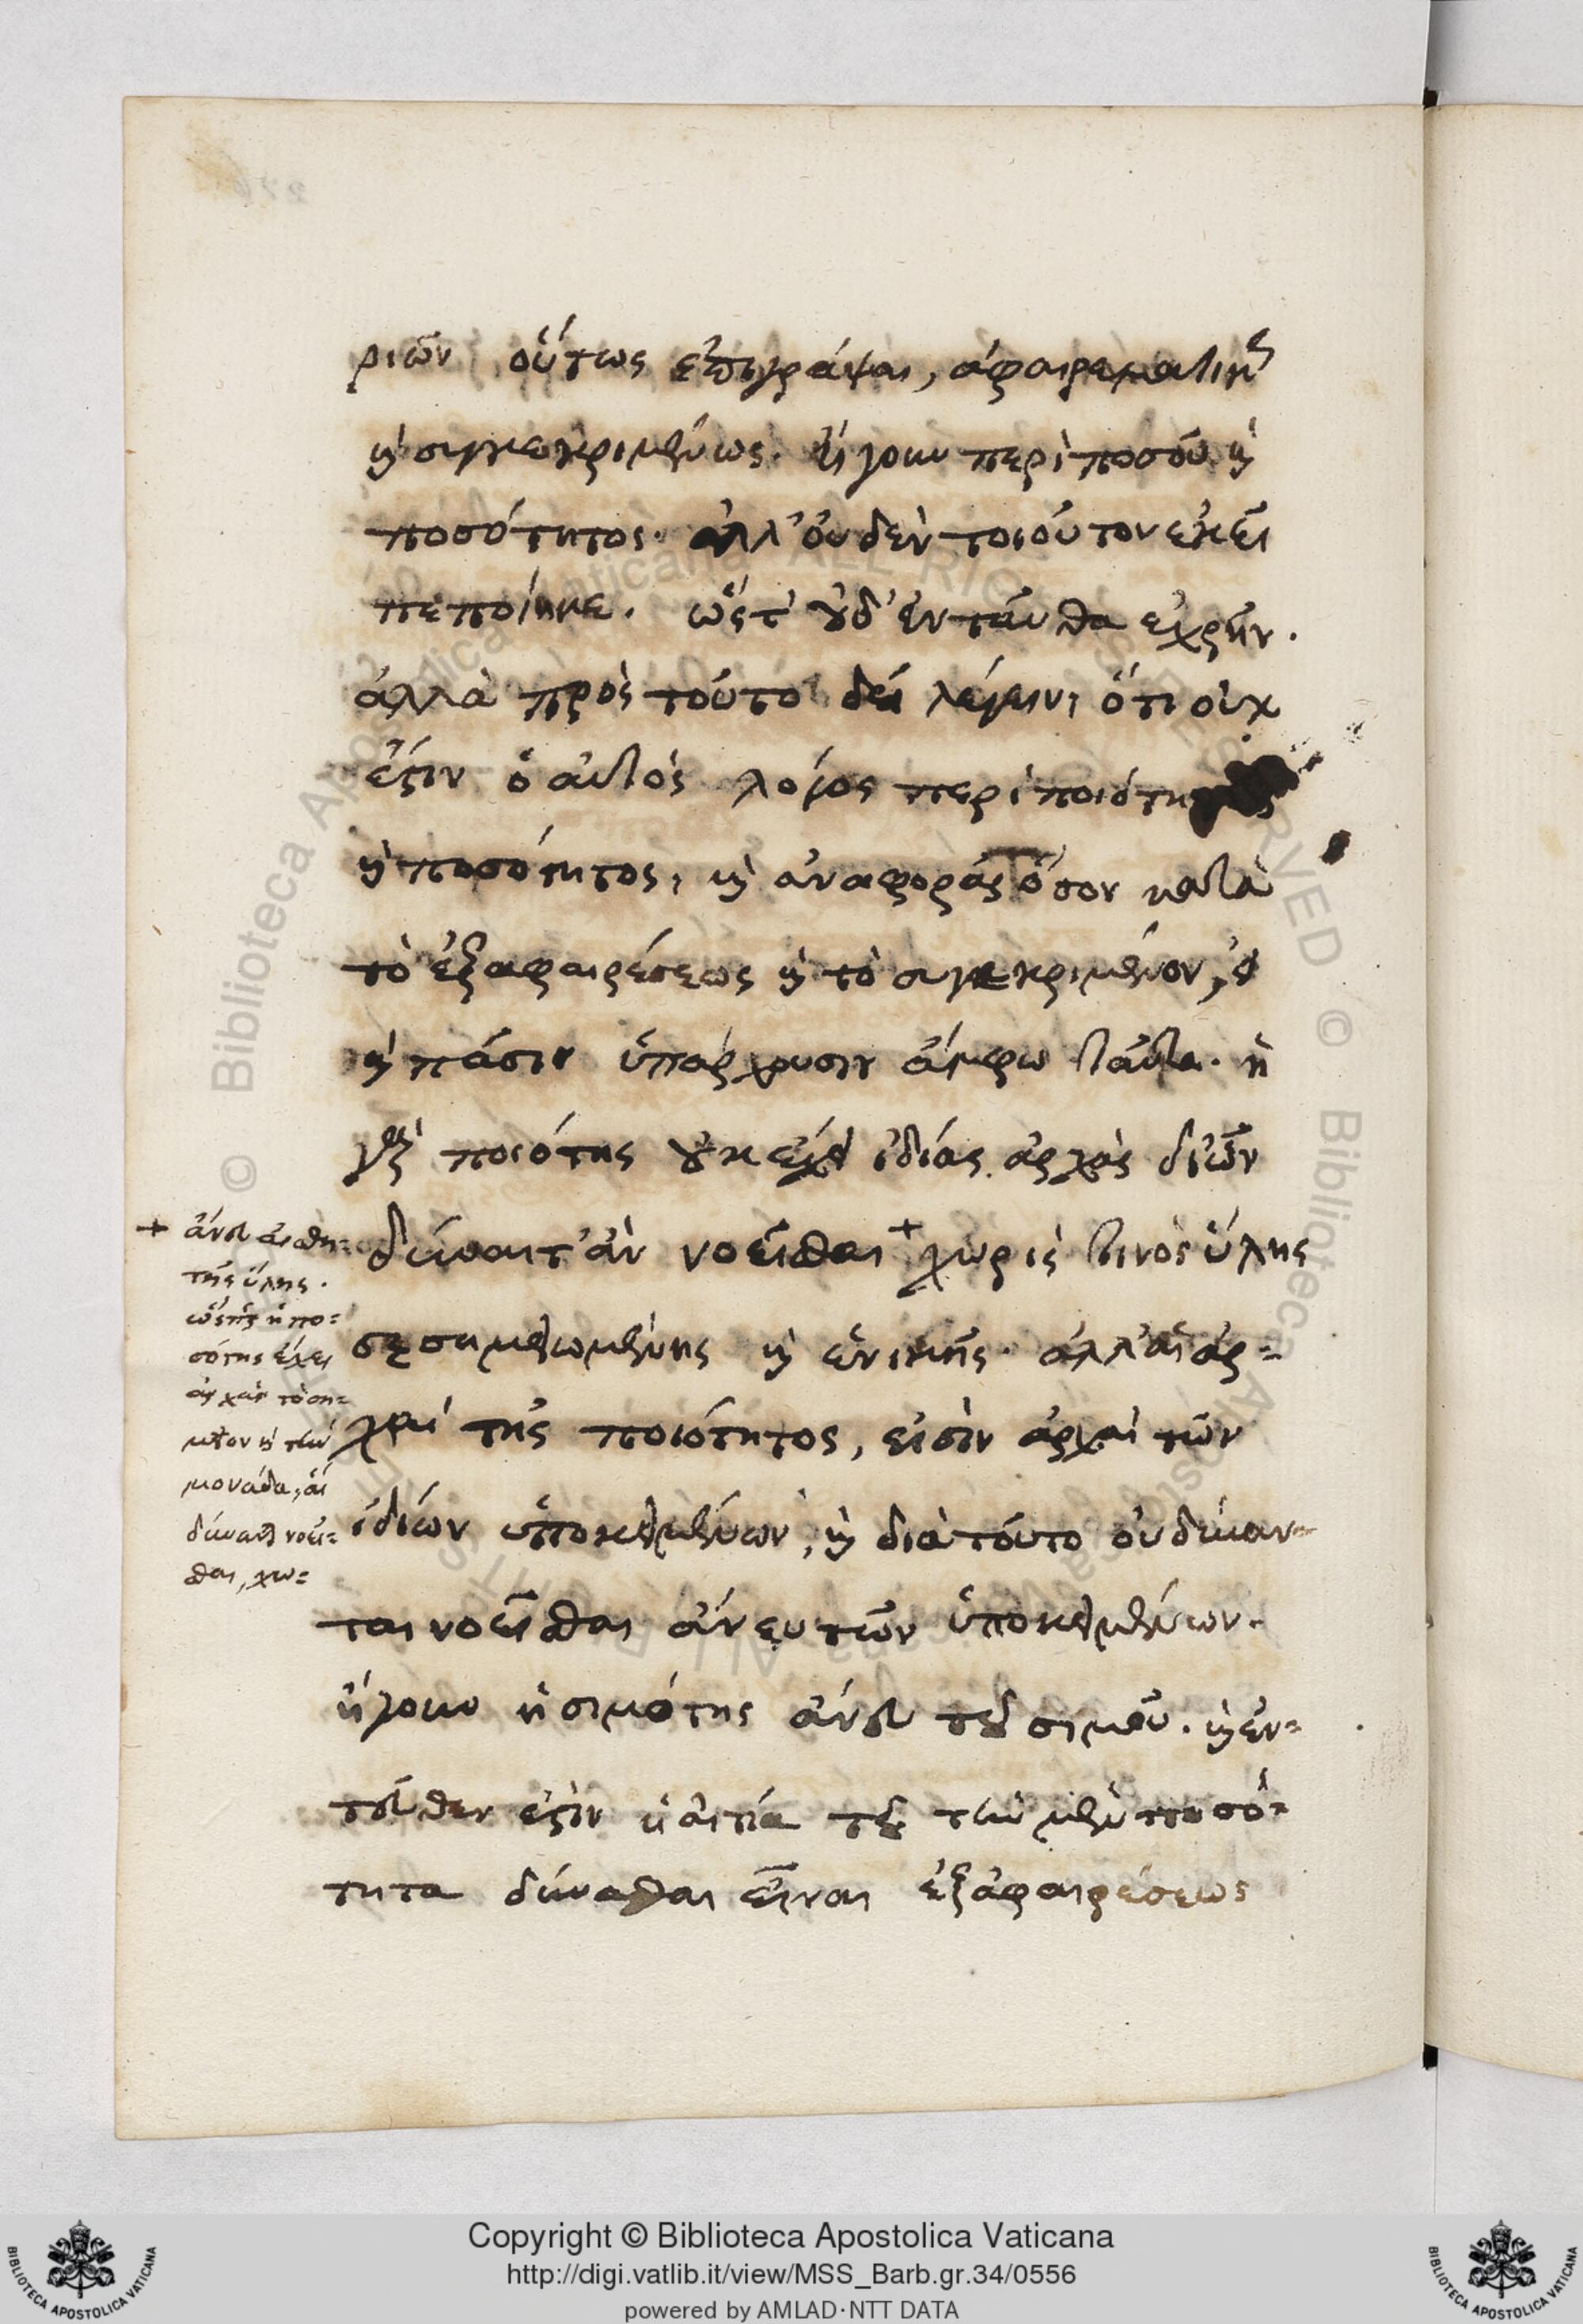 ριῶν οὕτως ἐπιγράψαι, ἀφαιρεματικῶς
καὶ συγκεκριμένως. ἤγουν περὶ ποσοῦ καὶ
ποσότητος. ἀλλ' οὐδὲν τοιοῦτον ἐκεῖ
πεποίηκε. ὥστ' οὐδ' ἐνταῦθα ἐχρῆν.
ἀλλὰ πρὸς τοῦτο δεῖ λέγειν, ὅτι οὐχ
ἔστιν ὁ αὐτὸς λόγος περὶ ποιότητος
καὶ ποσότητος, καὶ ἀναφορᾶς ὅσον κατὰ
τὸ ἐξ ἀφαιρέσεως καὶ τὸ συγκεκριμένον,
καὶ πάσιν ὑπάρχουσιν ἄμφω ταῦτα. ἡ
γὰρ ποιότης οὐκ ἔχει ἰδίας ἀρχὰς δι' ὧν
δύναιτ' ἂν νοεῖσθαι + χωρὶς τινὸς ὕλης
σεσημειωμένης καὶ ἑνικῆς. ἀλλ' αἱ ἀρ=
χαὶ τῆς ποιότητος, εἰσὶν ἀρχαὶ τῶν
ἰδίων ὑποκειμένων, καὶ διὰ τοῦτο οὐ δύναν-
ται νοεῖσθαι ἄνευ τῶν ὑποκειμένων.
ἤγουν ἡ σιμότης ἄνευ τοῦ σιμοῦ. καὶ ἐν=
τεῦθεν ἐστὶν ἡ αἰτία τοῦ τὴν μὲν ποσό=
τητα δύνασθαι εἶναι ἐξ ἀφαιρέσεως
+ ἄνευ αἰσθη=
τῆς ὕλης.
ὥσπερ ἡ πο=
σότης ἔχει
ἀρχὰς τὸ ση=
μεῖον καὶ τὴν
μονάδα, αἳ
δύνανται νοεῖ=
σθαι, χω=
Copyright © Biblioteca Apostolica Vaticana
http://digi.vatlib.it/view/MSS_Barb.gr.34/0556
powered by AMLAD·NTT DATA